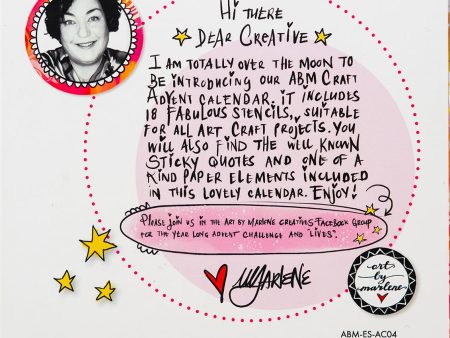 Hi THERE
DEAR CREATIVE
I AM TOTALLY OVER THE MOON TO
BE iNTRODUCING OUR ABM CRAFT
ADVENT CALENDAR. iT iNCLUDES
18 FABULOUS STENCiLS, SUiTABLE
FOR ALL ART CRAFT PROJECTS. YOU
WiLL ALSO FiND THE WELL KNOWN
STiCKY QUOTES AND ONE OF A
KiND PAPER ELEMENTS iNCLUDED
iN THIS LOVELY CALENDAR. ENJOY!
PLEASE JOiN US iN THE ART BY MARLENE CREATIVES FACEBOOK GROUP
FOR THE YEAR LONG ADVENT CHALLENGE AND "LiVES".
MARLENE
art
by
marlene
ABM-ES-AC04